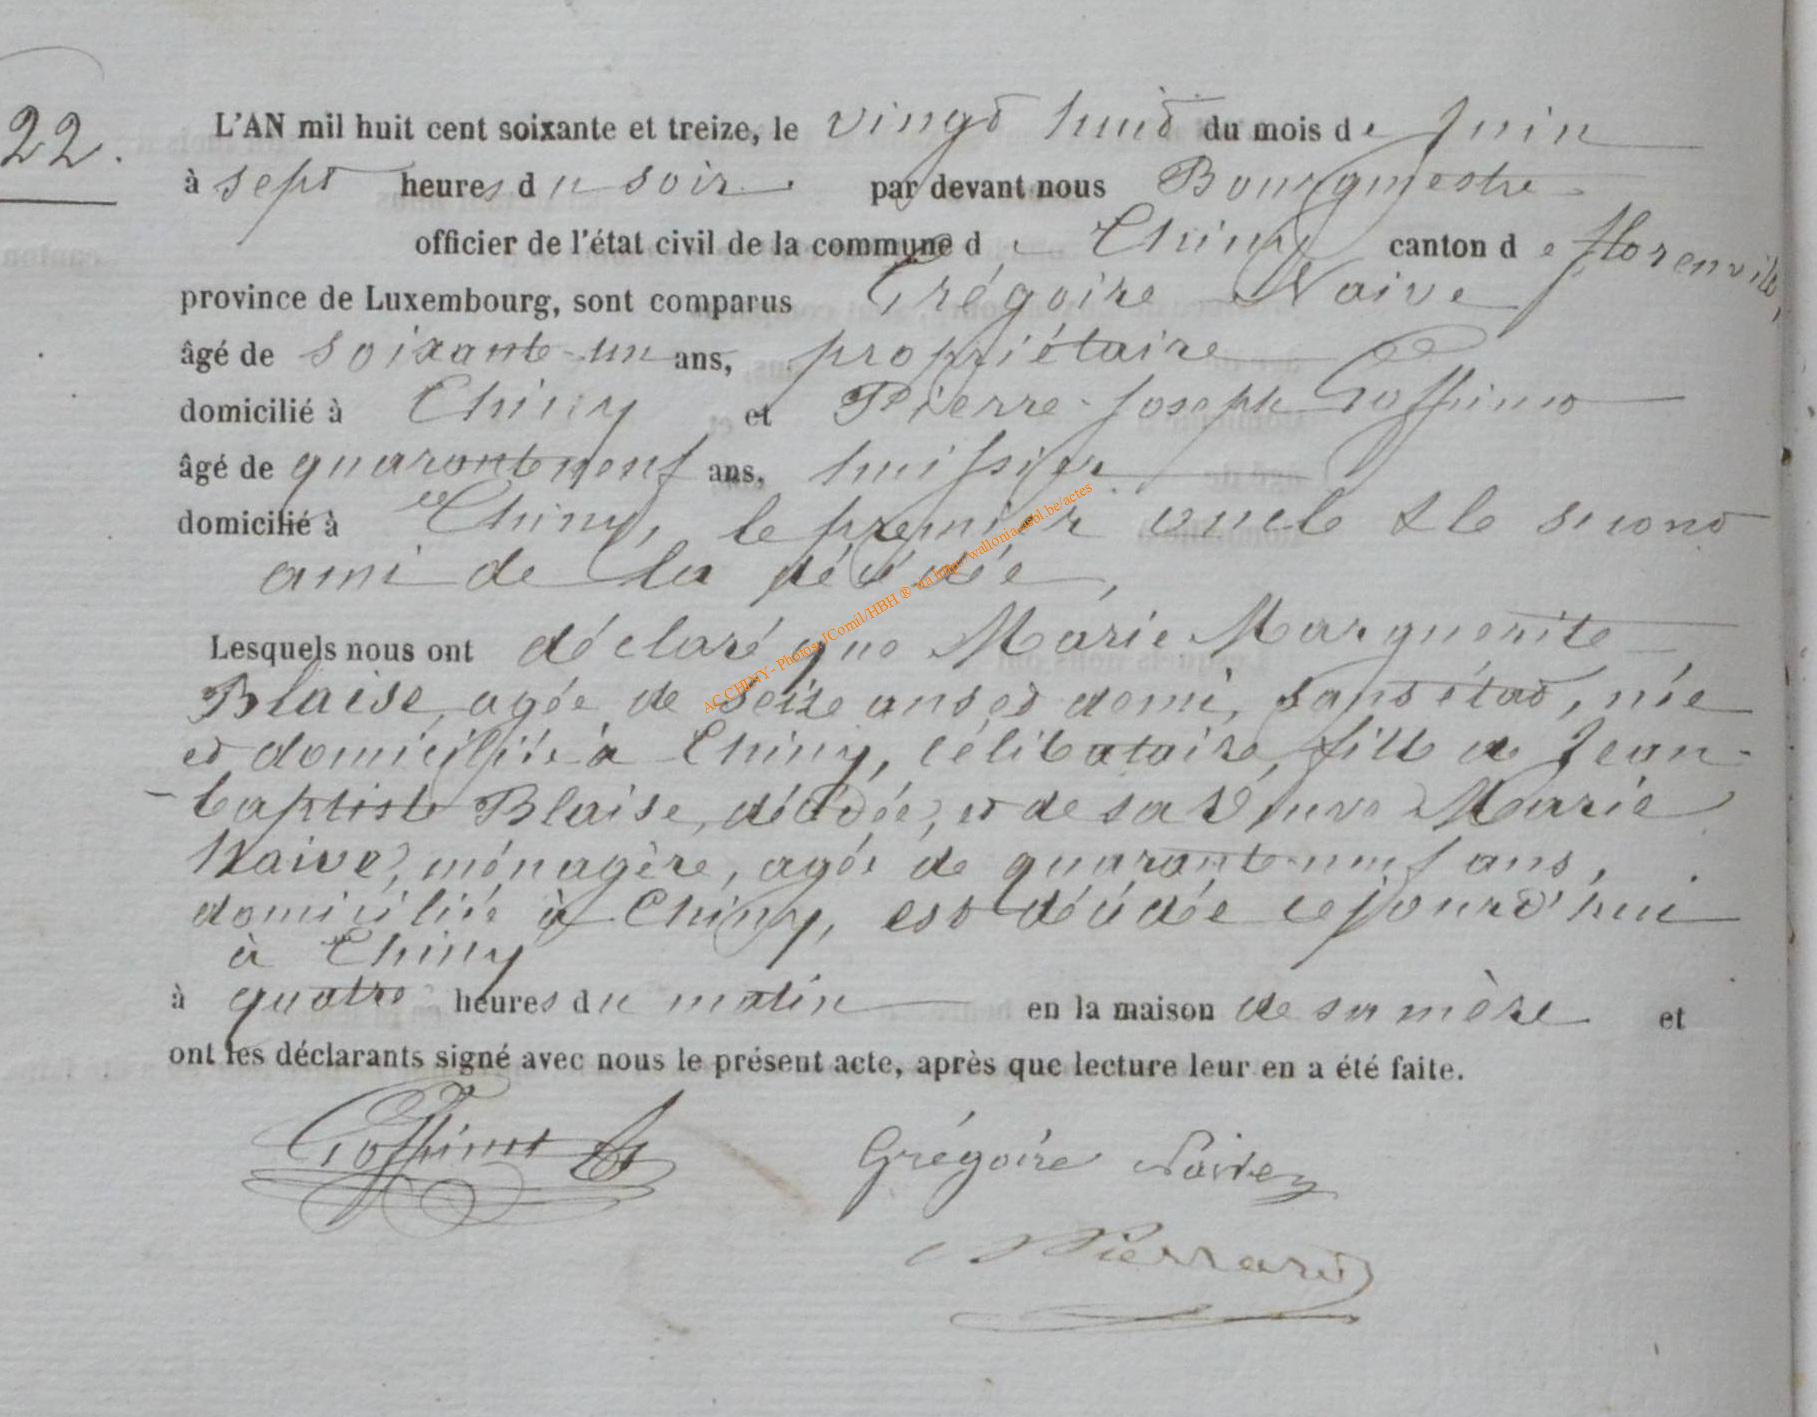 22.
L'AN mil huit cent soixante et treize, le vingt huit du mois de Juin
à sept heures du soir par devant nous Bourgmestre
officier de l'état civil de la commune de Chiny canton de Florenville,
province de Luxembourg, sont comparus Grégoire Naive
âgé de soixante-un ans, propriétaire
domicilié à Chiny et Pierre-Joseph Goffinet
âgé de quarante neuf ans, huissier
domicilié à Chiny, le premier oncle & le second
ami de la décédée,
Lesquels nous ont déclaré que Marie Marguerite
Blaise, agée de seize ans et demi, sans état, née
et domiciliée à Chiny, célibataire, fille de Jean-
-baptiste Blaise, décédé, et de sa veuve Marie
Naive, ménagère, agée de quarante neuf ans,
domiciliée à Chiny, est décédée cejourd'hui
à Chiny
à quatre heures du matin en la maison de sa mère et
ont les déclarants signé avec nous le présent acte, après que lecture leur en a été faite.
Goffinet Grégoire
Pierrard
AC CHINY - Photos JComil/HBH ® via http://wallonia-asbl.be/actes